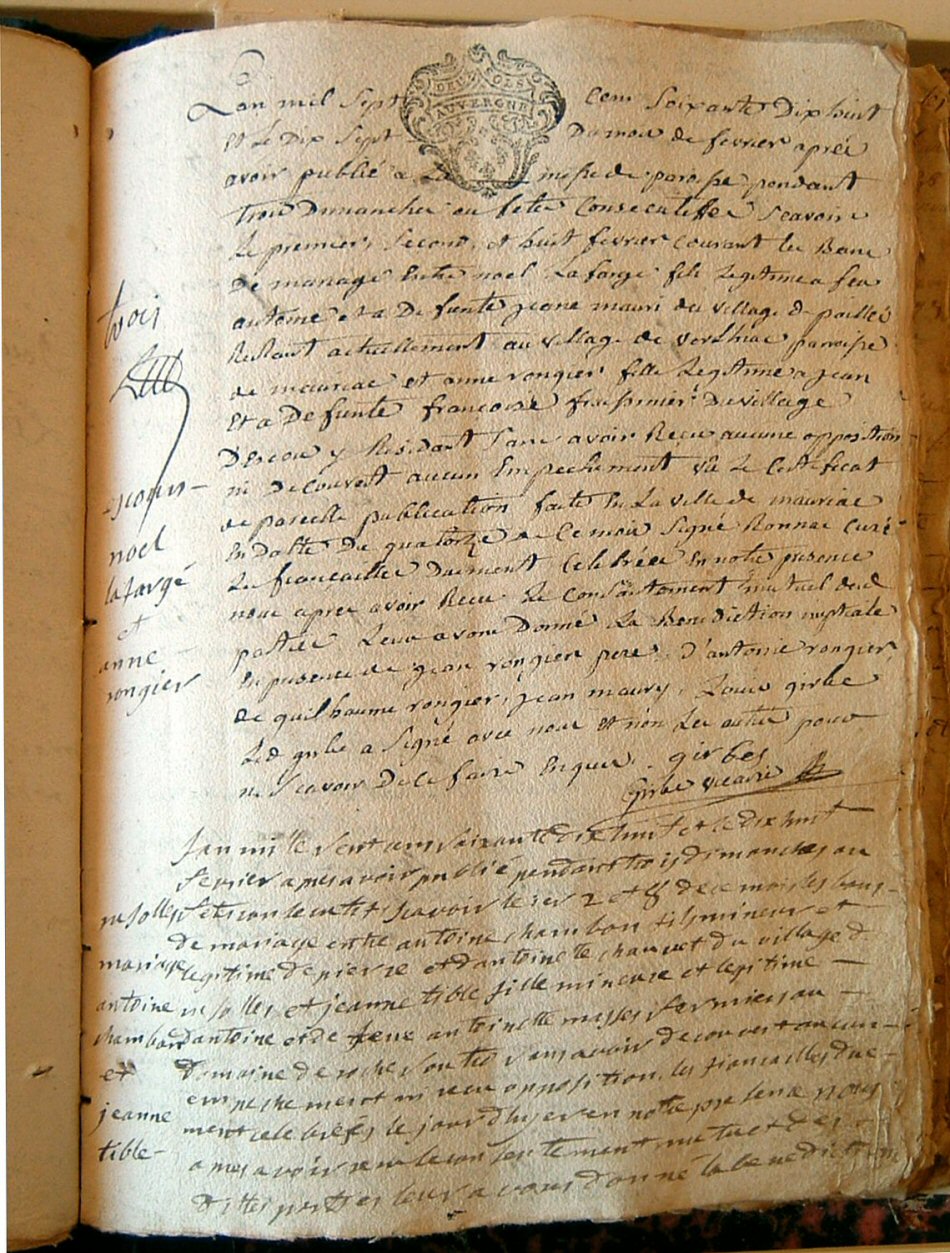 DEUX SOLS
AUVERGNE
L'an mil Sept cent Soixante Dix huit
Et Le Dix Sept Du mois de fevrier aprés
avoir publié a La messe de paroisse pendant
Trois Dimanches ou fetes Consecutifves Scavoir
Le premier, Second, et huit fevrier courant les Bans
De mariage Entre noel Lafarge fils Legitime a feu
antoine et a Defunte jeane mauri du village de
Restant actuellement au village de verlhiac paroisse
de mauriac et anne rongier fille Legitime a jean
Et a Defunte francoise Du village
Descou y Residant Sans avoir Reçu aucune opposition
ni Decouvert aucun Empechement vû Le Certificat
de pareille publication faite En La ville de mauriac
En datte Du quatorze de Ce mois Signé Ronnac Curé
Les fiançailles Duement Celebrées En notre presence
nous apres avoir Recu Le Consantement mutuel desd
parties Leur avons Donné La Benediction nuptiale
En presence de jean rongier pere, d'antoine rongier,
de guilhaume rongier, jean maury, Louis girbe
Led girbe a Signé avec nous Et non Les autres pour
ne Scavoir De Ce faire Enquis. girbes
Girbe vicaire
trois
escous
noel
lafarge
et
anne
rongier
Lan mille Sept cens Soixante dix huit et le dix huit
fevrier apres avoir publié pendant trois dimanches ou
fetes consecutifs scavoir le 1er 2 et 8 de ce mois les bans
de mariage entre antoine chambon fils mineur et
legitime de pierre et dantoinette chauvet du village d
et jeanne tible fille mineure et legitime
dantoine et de feue antoinette fermiers au
Domaine de sans avoir decouvert aucun
empechement ni recu opposition, les fiancailles due
ment celebrées le jourd'hyer en notre presence nous
apres avoir recu le consentement mutuel des
dittes parties leur avons donné la benediction
mariage
antoine
chambon
et
jeanne
tible